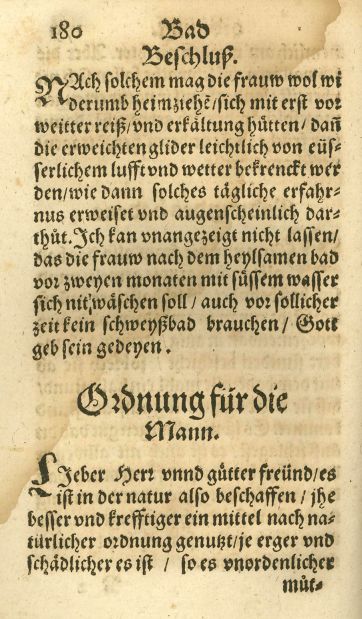 180 Bad
Beschluß.
NAch solchem mag die frauw wol wi
derumb heimziehẽ/sich mit erst vor
weitter reiß/vnd erkåltung hütten/ dañ
die erweichten glider leichtlich von eüs-
serlichem lufft vnd wetter bekrenckt wer
den/wie dann solches tågliche erfahr-
nus erweiset vnd augenscheinlich dar-
thůt. Ich kan vnangezeigt nicht lassen/
das die frauw nach dem heylsamen bad
vor zweyen monaten mit süssem wasser
sich nit wåschen soll/ auch vor sollicher
zeit kein schweyßbad brauchen/ Gott
geb sein gedeyen.
Ordnung für die
Mann.
LIeber Herr vnnd gůtter freünd/es
ist in der natur also beschaffen/ jhe
besser vnd krefftiger ein mittel nach na-
türlicher ordnung genutzt/je erger vnd
schådlicher es ist / so es vnordenlicher
můt-